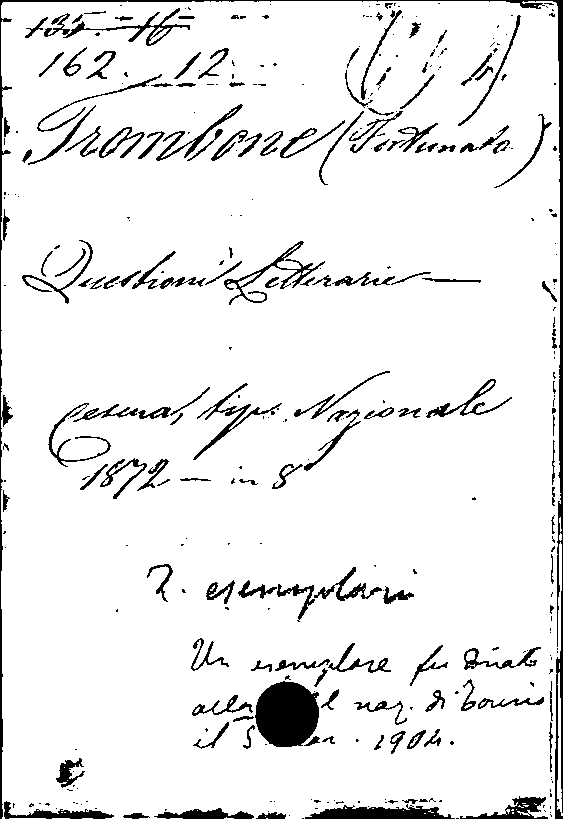 135. 16
162. 12.
Trombone (Fortunato)
Questioni Letterarie —
Cesena, tip. Nazionale
1872 — in 8°
2. esemplari
Un esemplare fu donato
alla naz. di Torino
il 5 1904.